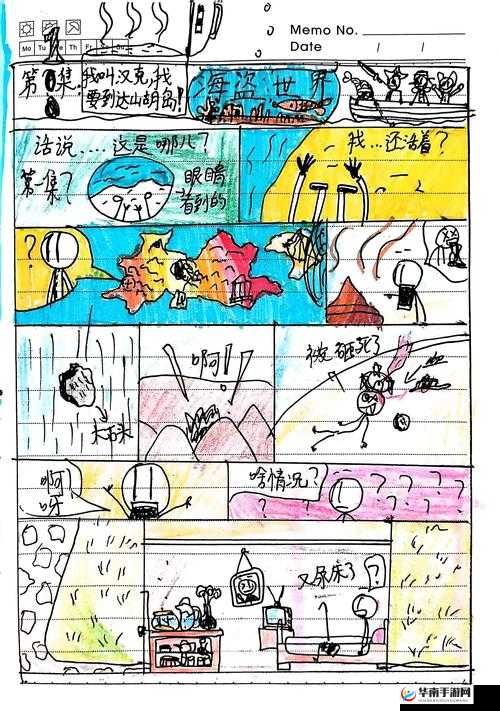 Memo No.
Mo Tu We Th Fr Sa Su
Date / /
第 集.
我叫汉克,我
要到达山胡岛!
海盗世界
话说.... 这是哪儿?
第一集?
眼睛
看到的
我...还活着?
?
大石头
啊!
被砸死了
啊!
呀
啥情况?
? ? ? ? ? ? ?
又尿床了
?
华南手游网